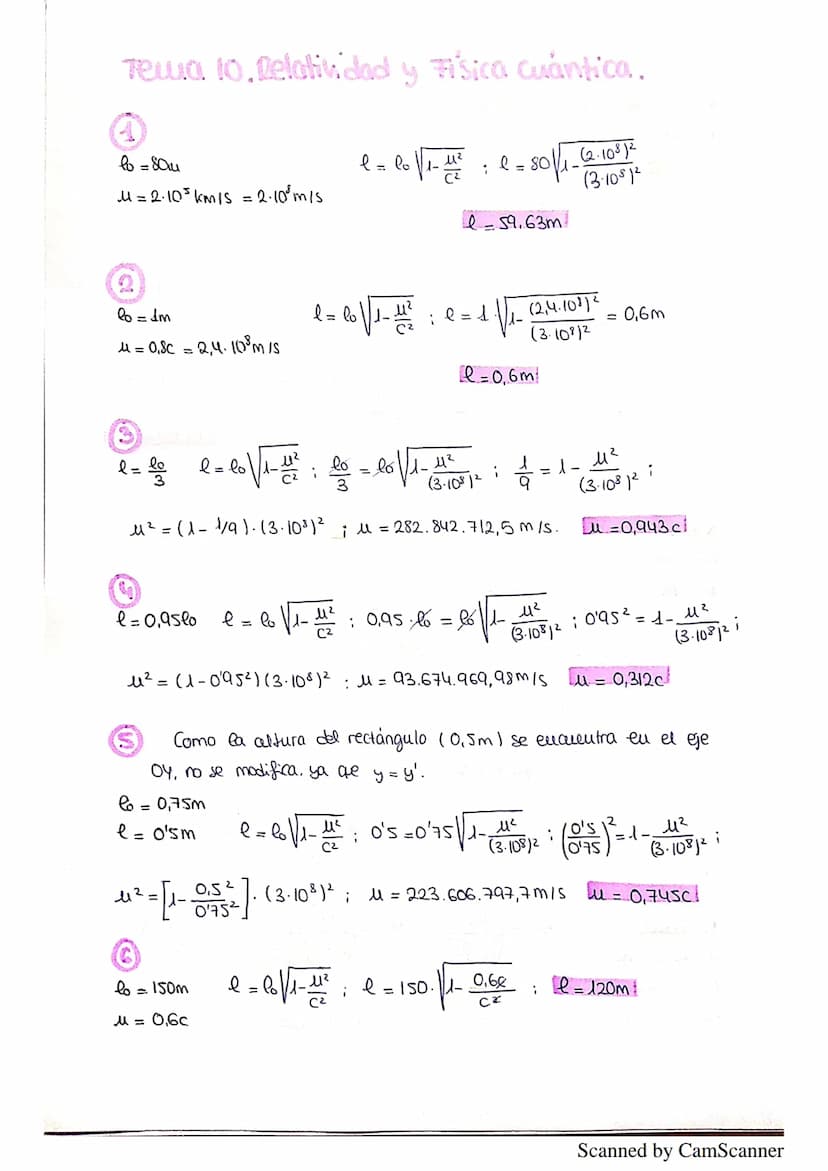 Tema 10. Relatividad y Física cuántica.
1
l₀ = 80m   l = l₀ √(1 - u²/c²) ; l = 80 √(1 - (2·10⁸)²/(3·10⁸)²)
u = 2·10⁵ km/s = 2·10⁸ m/s
l = 59.63m
2
l₀ = 1m   l = l₀ √(1 - u²/c²) ; l = 1 √(1 - (2,4·10⁸)²/(3·10⁸)²) = 0,6m
u = 0,8c = 2,4·10⁸ m/s
l = 0,6m
3
l = l₀/3   l = l₀ √(1 - u²/c²) ; l₀/3 = l₀ √(1 - u²/(3·10⁸)²) ; 1/9 = 1 - u²/(3·10⁸)² ;
u² = (1 - 1/9)·(3·10⁸)² ; u = 282.842.712,5 m/s. u = 0,943c
4
l = 0,95l₀   l = l₀ √(1 - u²/c²) ; 0,95·l₀ = l₀ √(1 - u²/(3·10⁸)²) ; 0'95² = 1 - u²/(3·10⁸)² ;
u² = (1 - 0'95²)(3·10⁸)² ; u = 93.674.969,98 m/s u = 0,312c
5 Como la altura del rectángulo (0,5m) se encuentra en el eje
OY, no se modifica. ya que y = y'.
l₀ = 0,75m
l = 0'5m   l = l₀ √(1 - u²/c²) ; 0'5 = 0'75 √(1 - u²/(3·10⁸)²) ; (0'5/0'75)² = 1 - u²/(3·10⁸)² ;
u² = [1 - 0,5²/0'75²]·(3·10⁸)² ; u = 223.606.797,7 m/s u = 0,745c
6
l₀ = 150m   l = l₀ √(1 - u²/c²) ; l = 150·√(1 - 0,6²/c²) ; l = 120m
u = 0,6c
Scanned by CamScanner